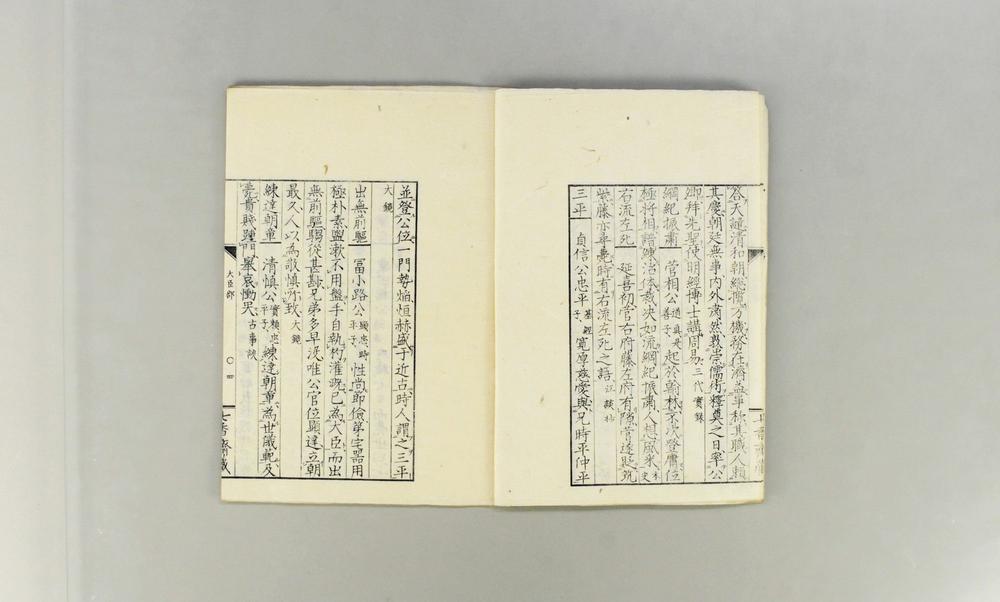 答天譴清和朝總攝万機務在濟益軍称其職人賴
其慶朝廷無事内外肅然敦崇儒術釋奠之日率公
卿拜先聖使明經博士講周易三代實録
綱紀振肅 菅相公道真是善子起於翰林不次登庸位
極将相諳練治体裁決如流綱紀振肅人想風采
右流左死 延喜初菅右府藤左府有隙菅遂貶筑
紫藤亦尋薨時有右流左死之語江談抄
三平 貞信公忠平基經子寛厚慈愛與兄時平仲平
並登公位一門勢焔烜赫盛于近古時人謂之三平
大鏡
出無前驅 冨小路公顕忠時平子性尚節儉第宅器用
極朴素盥漱不用盤手自執杓灌既已為大臣而出
無前驅騶從甚尠兄弟多早没唯公官位顯達立朝
最久人以為敬慎所致大鏡
練達朝章 清慎公實頼忠平子練達朝章為世儀範及
薨貴賤踵門舉哀慟哭古事談
大臣部
〇四